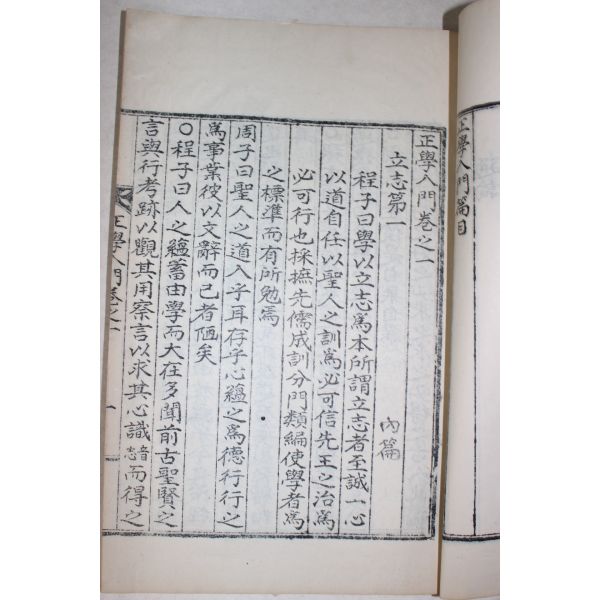 正學入門篇目
正學入門卷之一
立志第一 內篇
程子曰學以立志爲本所謂立志者至誠一心
以道自任以聖人之訓爲必可信先王之治爲
必可行也採摭先儒成訓分門類編使學者爲
之標準而有所勉焉
周子曰聖人之道入乎耳存乎心蘊之爲德行行之
爲事業彼以文辭而已者陋矣
○程子曰人之蘊蓄由學而大在多聞前古聖賢之
言與行考跡以觀其用察言以求其心識而得之
正學入門卷之一 一